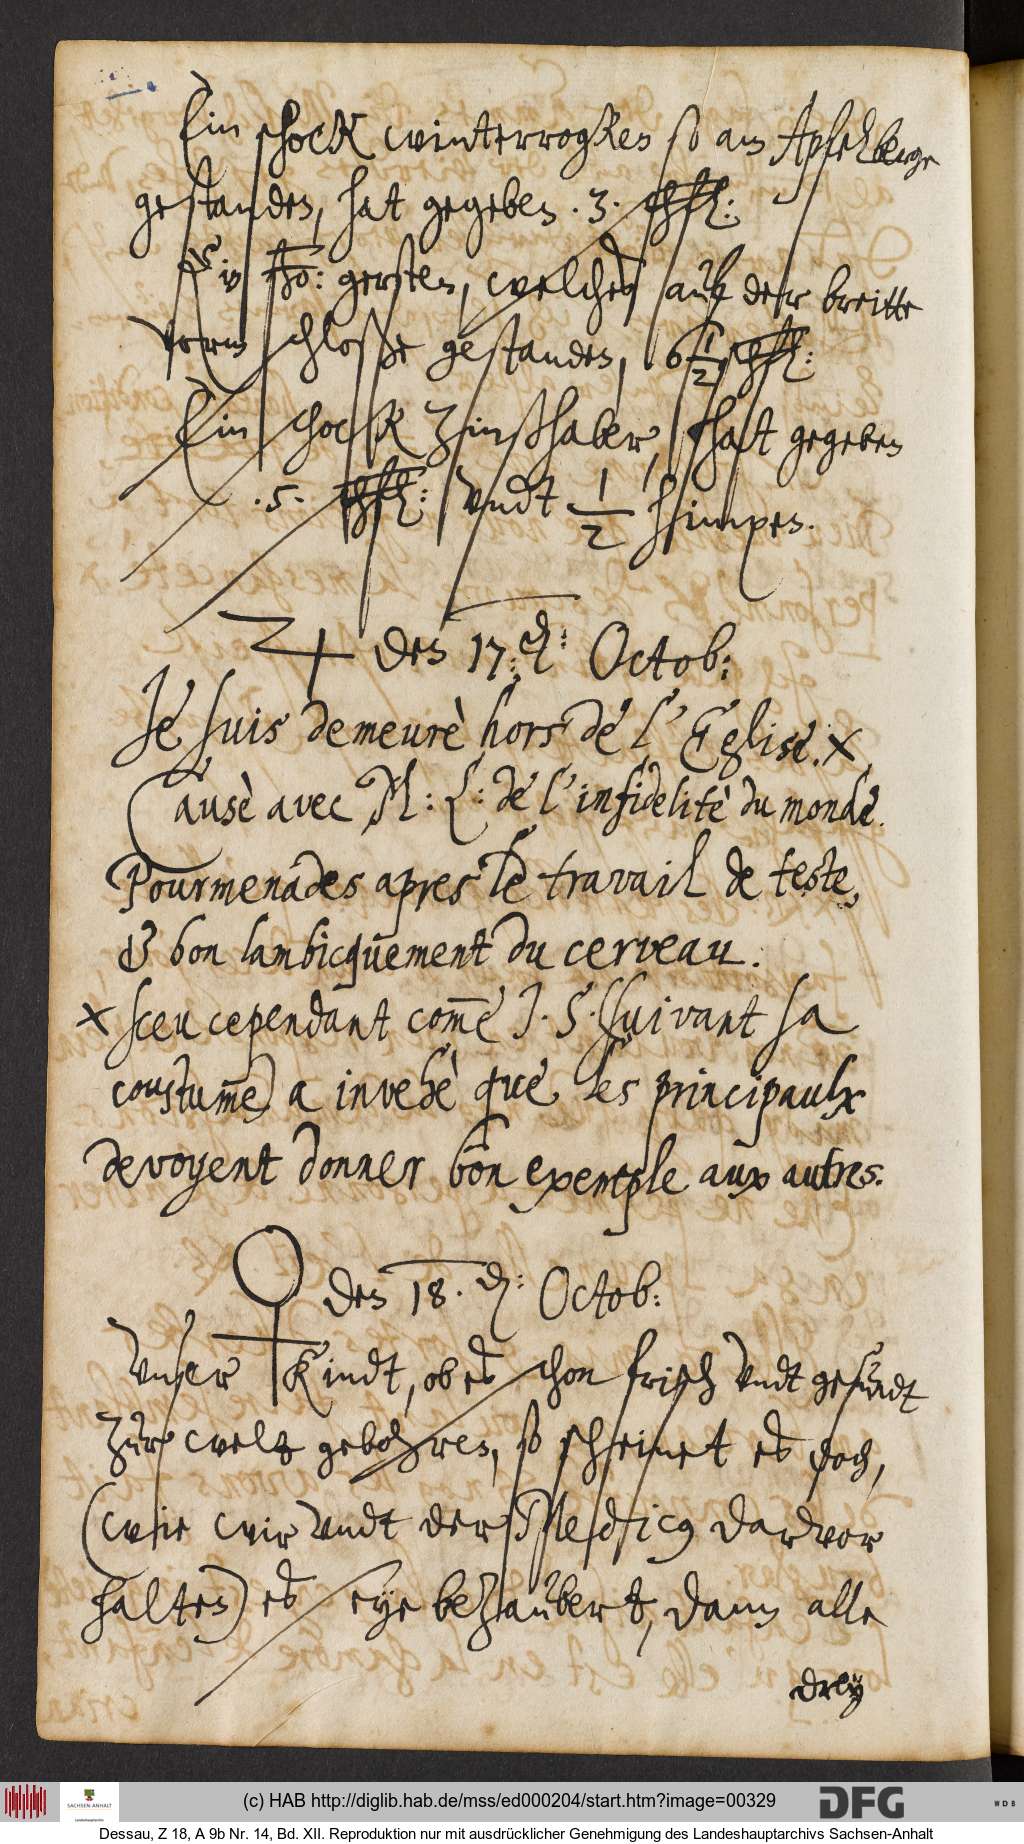 Ein schock winterrogken so am Apfelberge
gestanden, hat gegeben .3. schfl:
Ein ßo: gersten, welches auf der breitte
vorm schloße gestanden, 6 1/2 schfl:
Ein schock Zinßhaber, hatt gegeben
.5. schfl: vndt 1/2 himpen.
♃ den 17.d: Octob:
Je suis demeurè hors de l'Eglise. ×
Causè avec M: L: de l'infidelitè du monde.
Pourmenades apres le travail de teste,
& bon lambicquement du cerveau.
× sceu cependant com̃e J. S. (suivant sa
coustum̃e) a invehè que les principaulx
devoyent donner bon exemple aux autres.
♀ den 18. d: Octob:
Vnser Kindt, ob es schon frisch vndt gesundt
zur welt gebohren, so scheinet es doch,
(wie wir vndt der Medicus darvor
halten) es seye bezaubert, dann alle
drey
(c) HAB http://diglib.hab.de/mss/ed000204/start.htm?image=00329
SACHSEN-ANHALT
Landeshauptarchiv
DFG
WDB
Dessau, Z 18, A 9b Nr. 14, Bd. XII. Reproduktion nur mit ausdrücklicher Genehmigung des Landeshauptarchivs Sachsen-Anhalt